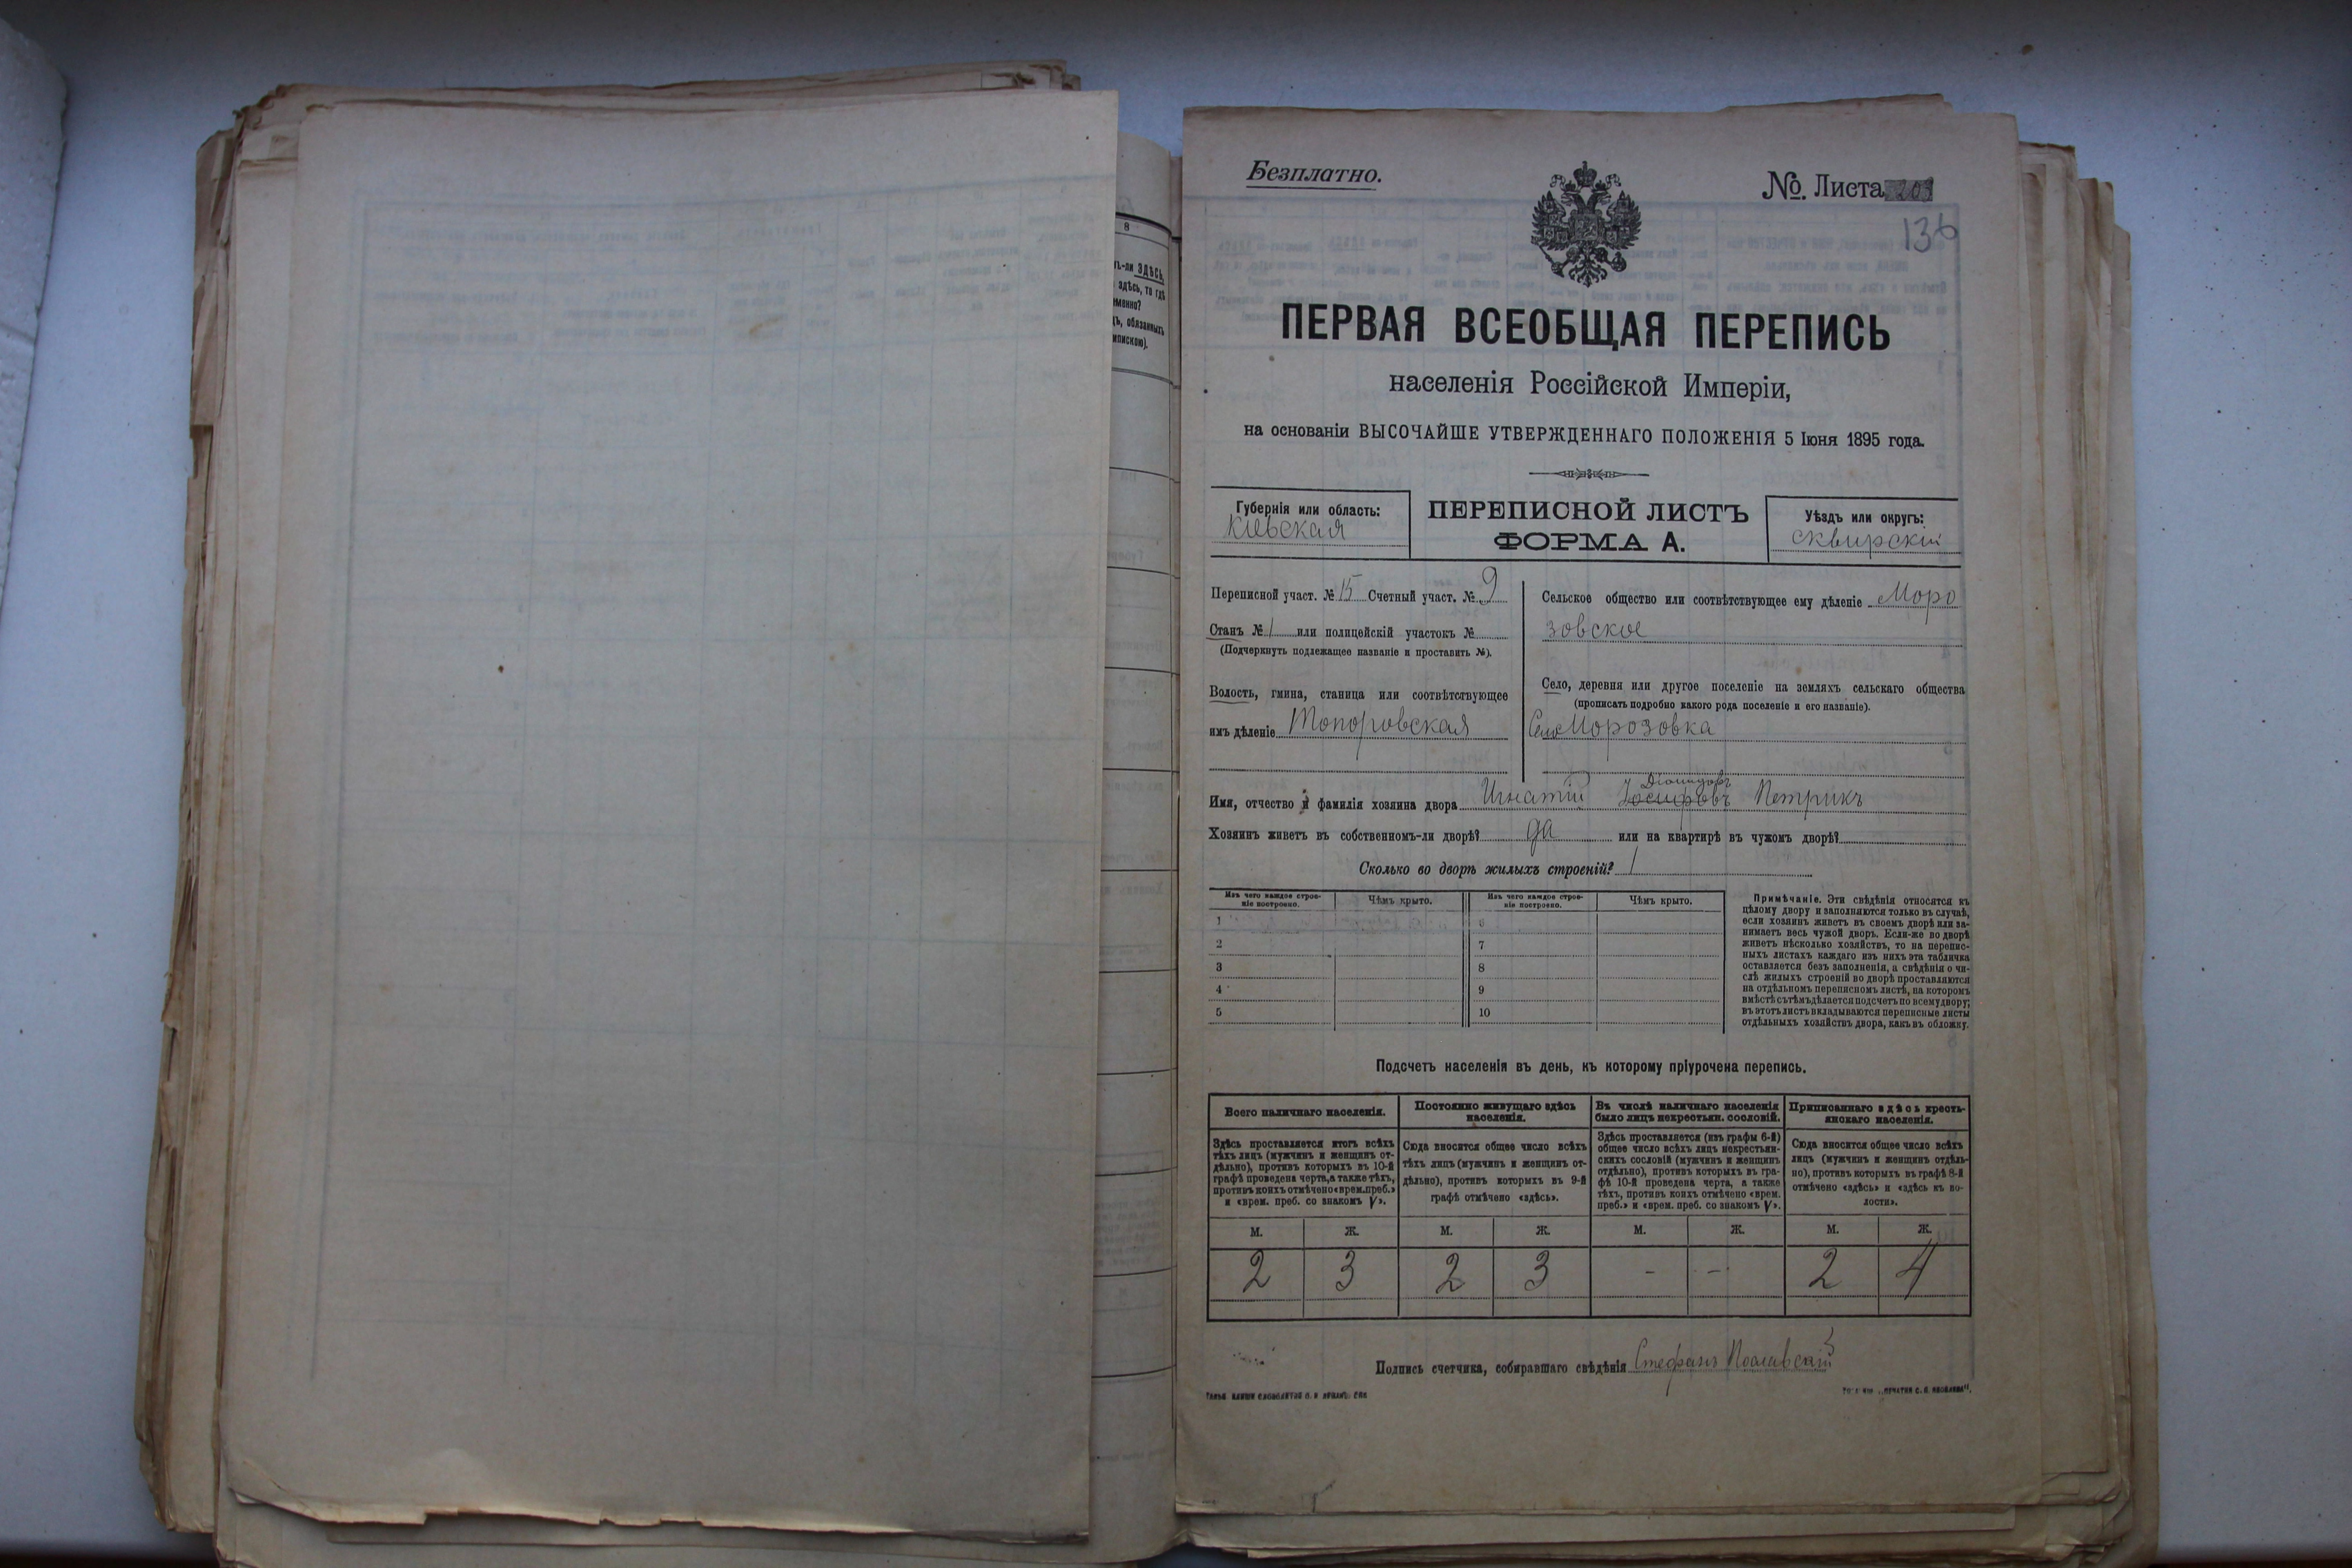 8
ЗДѢСЬ,
здѣсь, то гдѣ
обязанныхъ
Безплатно.
№. Листа
136
ПЕРВАЯ ВСЕОБЩАЯ ПЕРЕПИСЬ
населенія Россійской Имперіи,
на основаніи ВЫСОЧАЙШЕ УТВЕРЖДЕННАГО ПОЛОЖЕНІЯ 5 Іюня 1895 года.
Губернія или область:
Кіевская
ПЕРЕПИСНОЙ ЛИСТЪ
ФОРМА А.
Уѣздъ или округъ:
сквирскій
Переписной участ. № 15 Счетный участ. № 9
Станъ № 1 или полицейскій участокъ №
(Подчеркнуть подлежащее названіе и проставить №).
Волость, гмина, станица или соотвѣтствующее
имъ дѣленіе Топоровская
Сельское общество или соотвѣтствующее ему дѣленіе Моро
зовское
Село, деревня или другое поселеніе на земляхъ сельскаго общества
(прописать подробно какого рода поселеніе и его названіе).
Село Морозовка
Имя, отчество и фамилія хозяина двора Игнатій Іосифовъ Петрикъ
Хозяинъ живетъ въ собственномъ-ли дворѣ? да или на квартирѣ въ чужомъ дворѣ?
Сколько во дворѣ жилыхъ строеній? 1
Изъ чего каждое строе-
ніе построено.
Чѣмъ крыто.
Изъ чего каждое строе-
ніе построено.
Чѣмъ крыто.
1 6
2 7
3 8
4 9
5 10
Примѣчаніе. Эти свѣдѣнія относятся къ
цѣлому двору и заполняются только въ случаѣ,
если хозяинъ живетъ въ своемъ дворѣ или за-
нимаетъ весь чужой дворъ. Если-же во дворѣ
живетъ нѣсколько хозяйствъ, то на перепис-
ныхъ листахъ каждаго изъ нихъ эта табличка
оставляется безъ заполненія, а свѣдѣнія о чи-
слѣ жилыхъ строеній во дворѣ проставляются
на отдѣльномъ переписномъ листѣ, на которомъ
вмѣстѣ съ тѣмъ дѣлается подсчетъ по всему двору;
въ этотъ листъ вкладываются переписные листы
отдѣльныхъ хозяйствъ двора, какъ въ обложку.
Подсчетъ населенія въ день, къ которому пріурочена перепись.
Всего наличнаго населенія.
Здѣсь проставляется итогъ всѣхъ
тѣхъ лицъ (мужчинъ и женщинъ от-
дѣльно), противъ которыхъ въ 10-й
графѣ проведена черта, а также тѣхъ,
противъ коихъ отмѣчено «врем. преб.»
и «врем. преб. со знакомъ V».
Постоянно живущаго здѣсь
населенія.
Сюда вносится общее число всѣхъ
тѣхъ лицъ (мужчинъ и женщинъ от-
дѣльно), противъ которыхъ въ 9-й
графѣ отмѣчено «здѣсь».
Въ числѣ наличнаго населенія
было лицъ некрестьян. сословій.
Здѣсь проставляется (изъ графы 6-й)
общее число всѣхъ лицъ некрестьян-
скихъ сословій (мужчинъ и женщинъ
отдѣльно), противъ которыхъ въ гра-
фѣ 10-й проведена черта, а также
тѣхъ, противъ коихъ отмѣчено «врем.
преб.» и «врем. преб. со знакомъ V».
Приписаннаго здѣсь кресть-
янскаго населенія.
Сюда вносится общее число всѣхъ
лицъ (мужчинъ и женщинъ отдѣль-
но), противъ которыхъ въ графѣ 8-й
отмѣчено «здѣсь» и «здѣсь къ во-
лости».
М. Ж. М. Ж. М. Ж. М. Ж.
2 3 2 3 - - 2 4
Подпись счетчика, собиравшаго свѣдѣнія Стефанъ